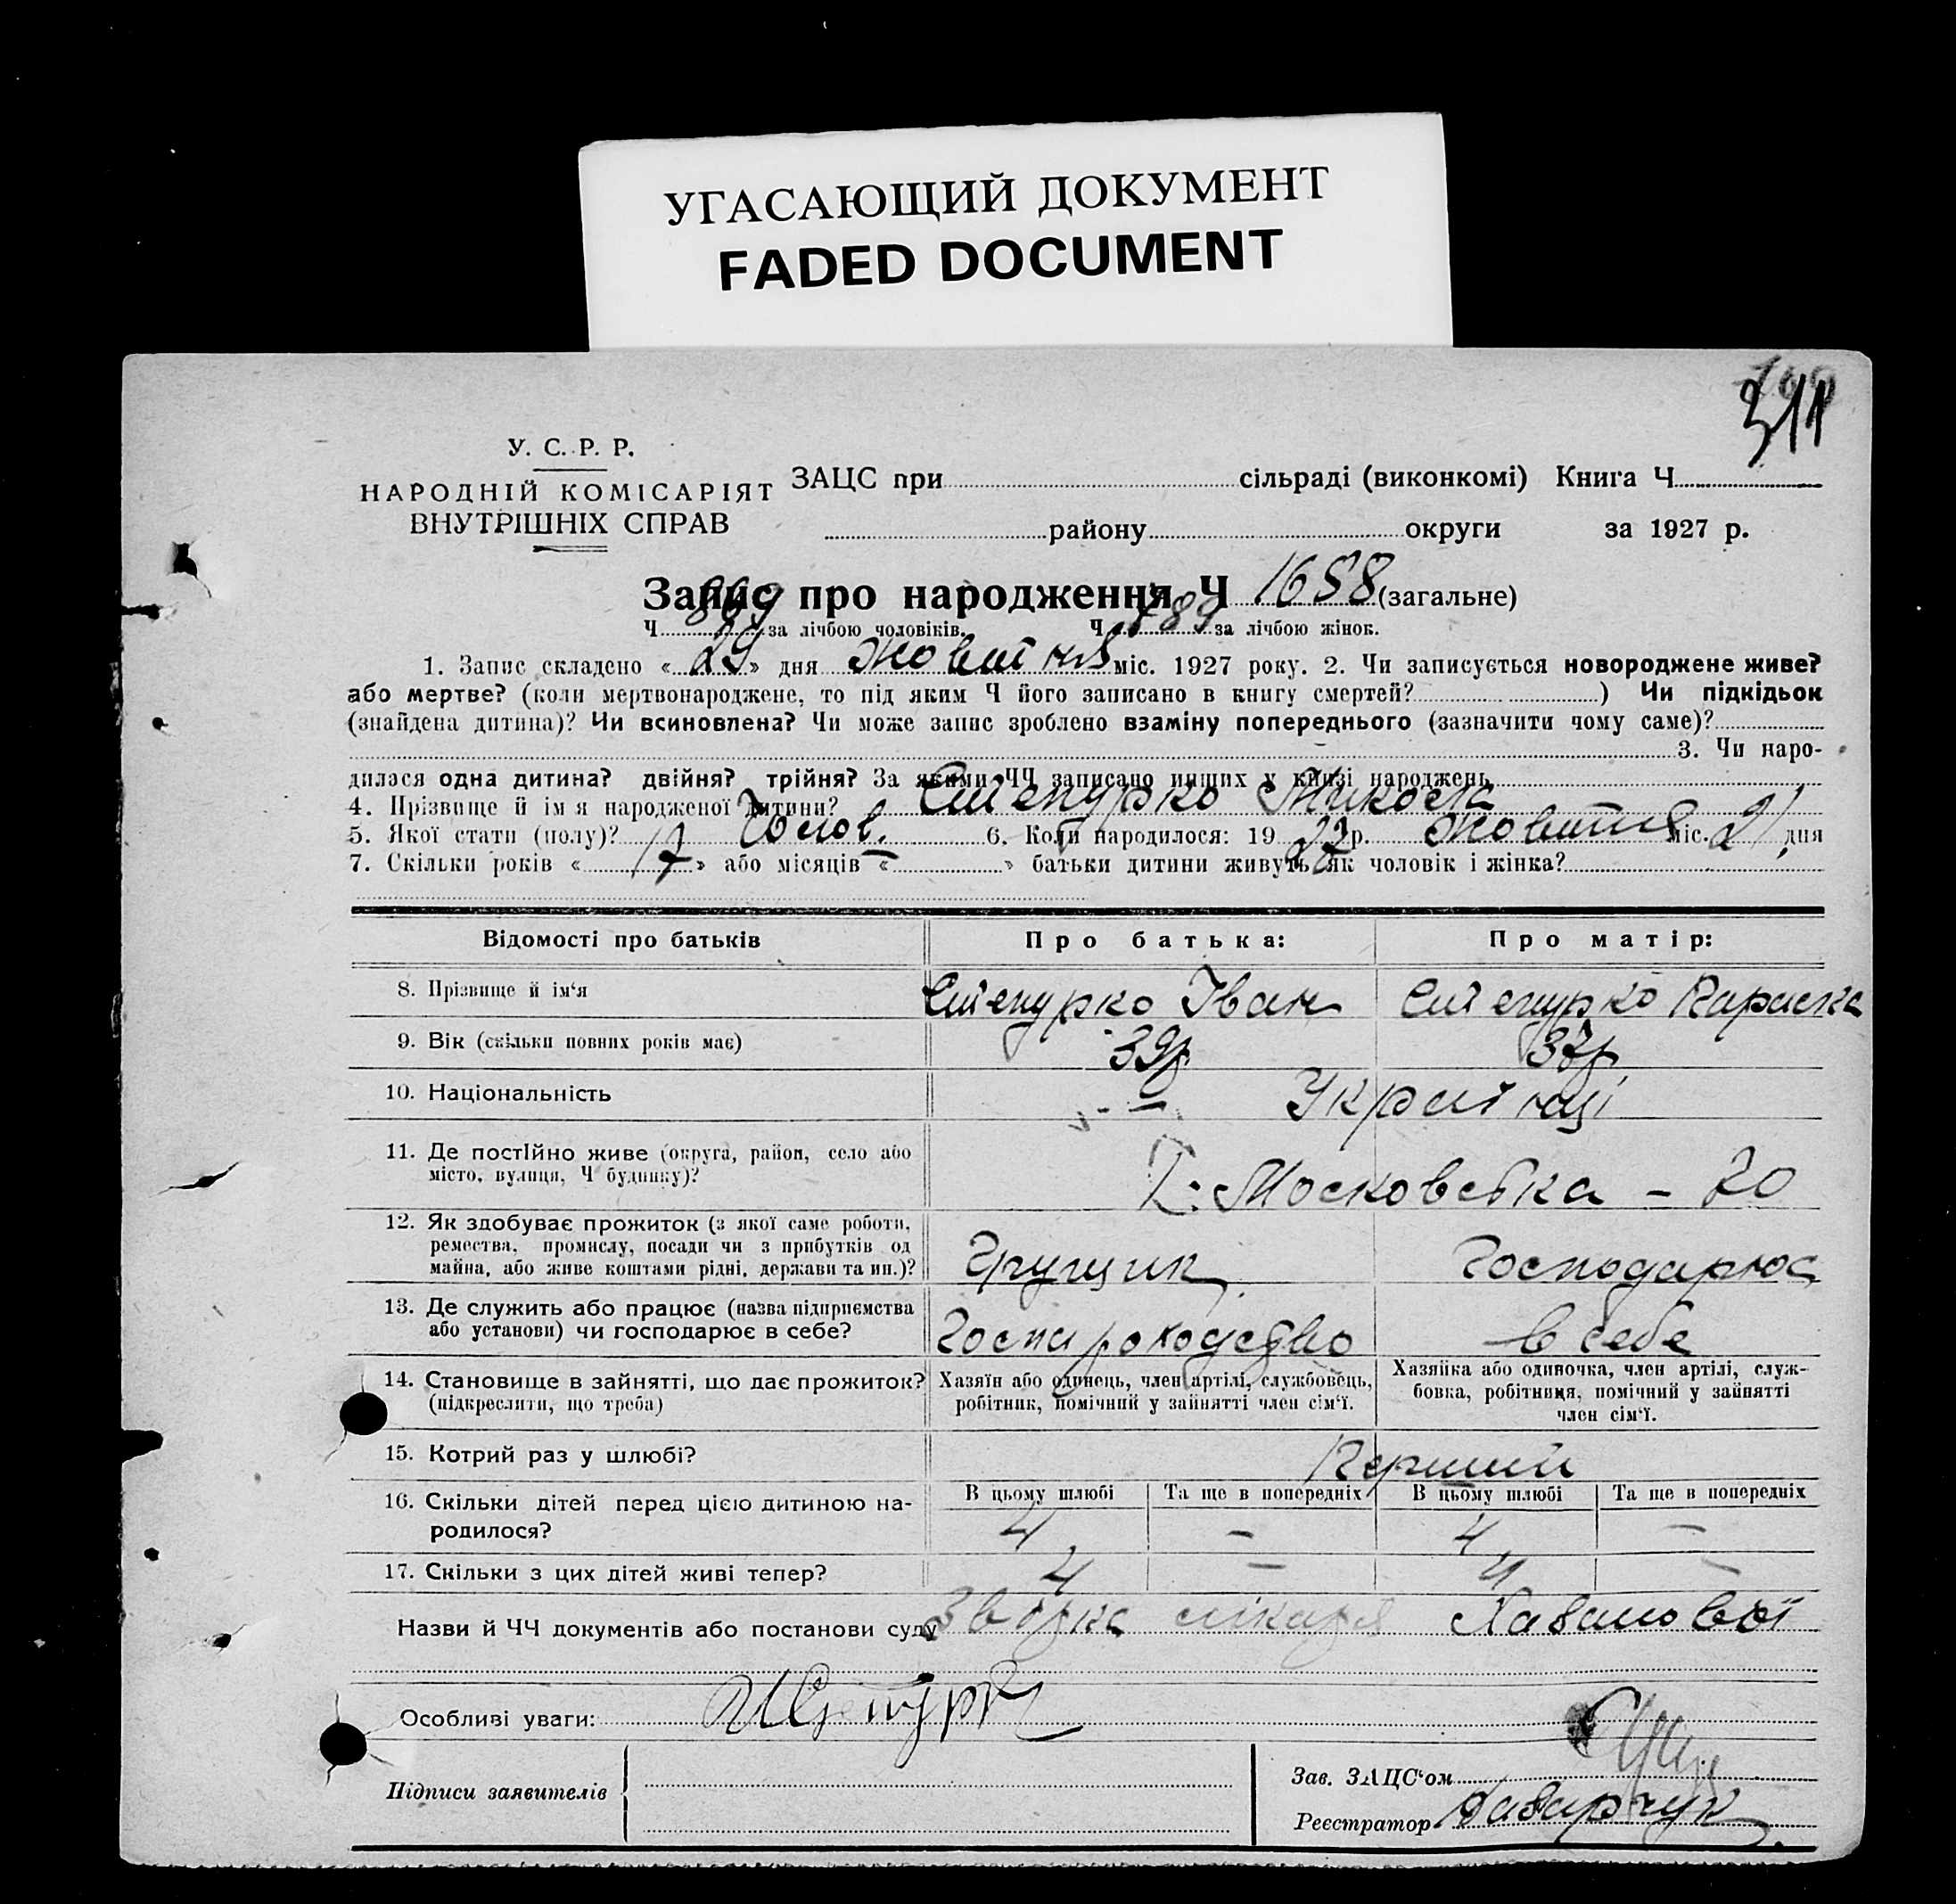 УГАСАЮЩИЙ ДОКУМЕНТ
FADED DOCUMENT
311
У. С. Р. Р.
НАРОДНІЙ КОМІСАРІЯТ
ВНУТРІШНІХ СПРАВ
ЗАЦС при сільраді (виконкомі) Книга Ч.
району округи за 1927 р.
Запис про народження Ч 1658 (загальне)
Ч 869 за лічбою чоловіків. Ч 789 за лічбою жінок.
1. Запис складено « 29 » дня Жовтня міс. 1927 року. 2. Чи записується новороджене живе?
або мертве? (коли мертвонароджене, то під яким Ч його записано в книгу смертей? ) Чи підкідьок
(знайдена дитина)? Чи всиновлена? Чи може запис зроблено взаміну попереднього (зазначити чому саме)?
3. Чи наро-
дилася одна дитина? двійня? трійня? За якими ЧЧ записано инших у книзі народжень
4. Прізвище й ім я народженої дитини? Степурко Микола
5. Якої стати (полу)? Чолов. 6. Коли народилося: 19 27 р. Жовтня міс. 21 дня
7. Скільки років « 17 » або місяців « – » батьки дитини живуть як чоловік і жінка?
Відомості про батьків Про батька: Про матір:
8. Прізвище й ім‘я Степурко Іван Степурко Параска
9. Вік (скільки повних років має) 39р. 37р.
10. Національність Українці
11. Де постІйно живе (округа, район, село або
місто, вулиця, Ч будинку)? Московська – 70
12. Як здобуває прожиток (з якої саме роботи,
ремества, промислу, посади чи з прибутків од
майна, або живе коштами рідні, держави та ин.)? Грущик Господарює
13. Де служить або працює (назва підприємства
або установи) чи господарює в себе? Госпароходство в себе
14. Становище в зайнятті, що дає прожиток?
(підкреслити, що треба)
Хазяїн або одинець, член артілі, службовець,
робітник, помічний у зайнятті член сім‘ї.
Хазяйка або одиночка, член артілі, служ-
бовка, робітниця, помічний у зайнятті
член сім‘ї.
15. Котрий раз у шлюбі? Перший
16. Скільки дітей перед цією дитиною на-
родилося?
В цьому шлюбі Та ще в попередніх В цьому шлюбі Та ще в попередніх
4 – 4 –
17. Скільки з цих дітей живі тепер? 4 – 4 –
Назви й ЧЧ документів або постанови суду лікаря
Особливі уваги:
Підписи заявителів
Зав. ЗАЦС‘ом
Реєстратор